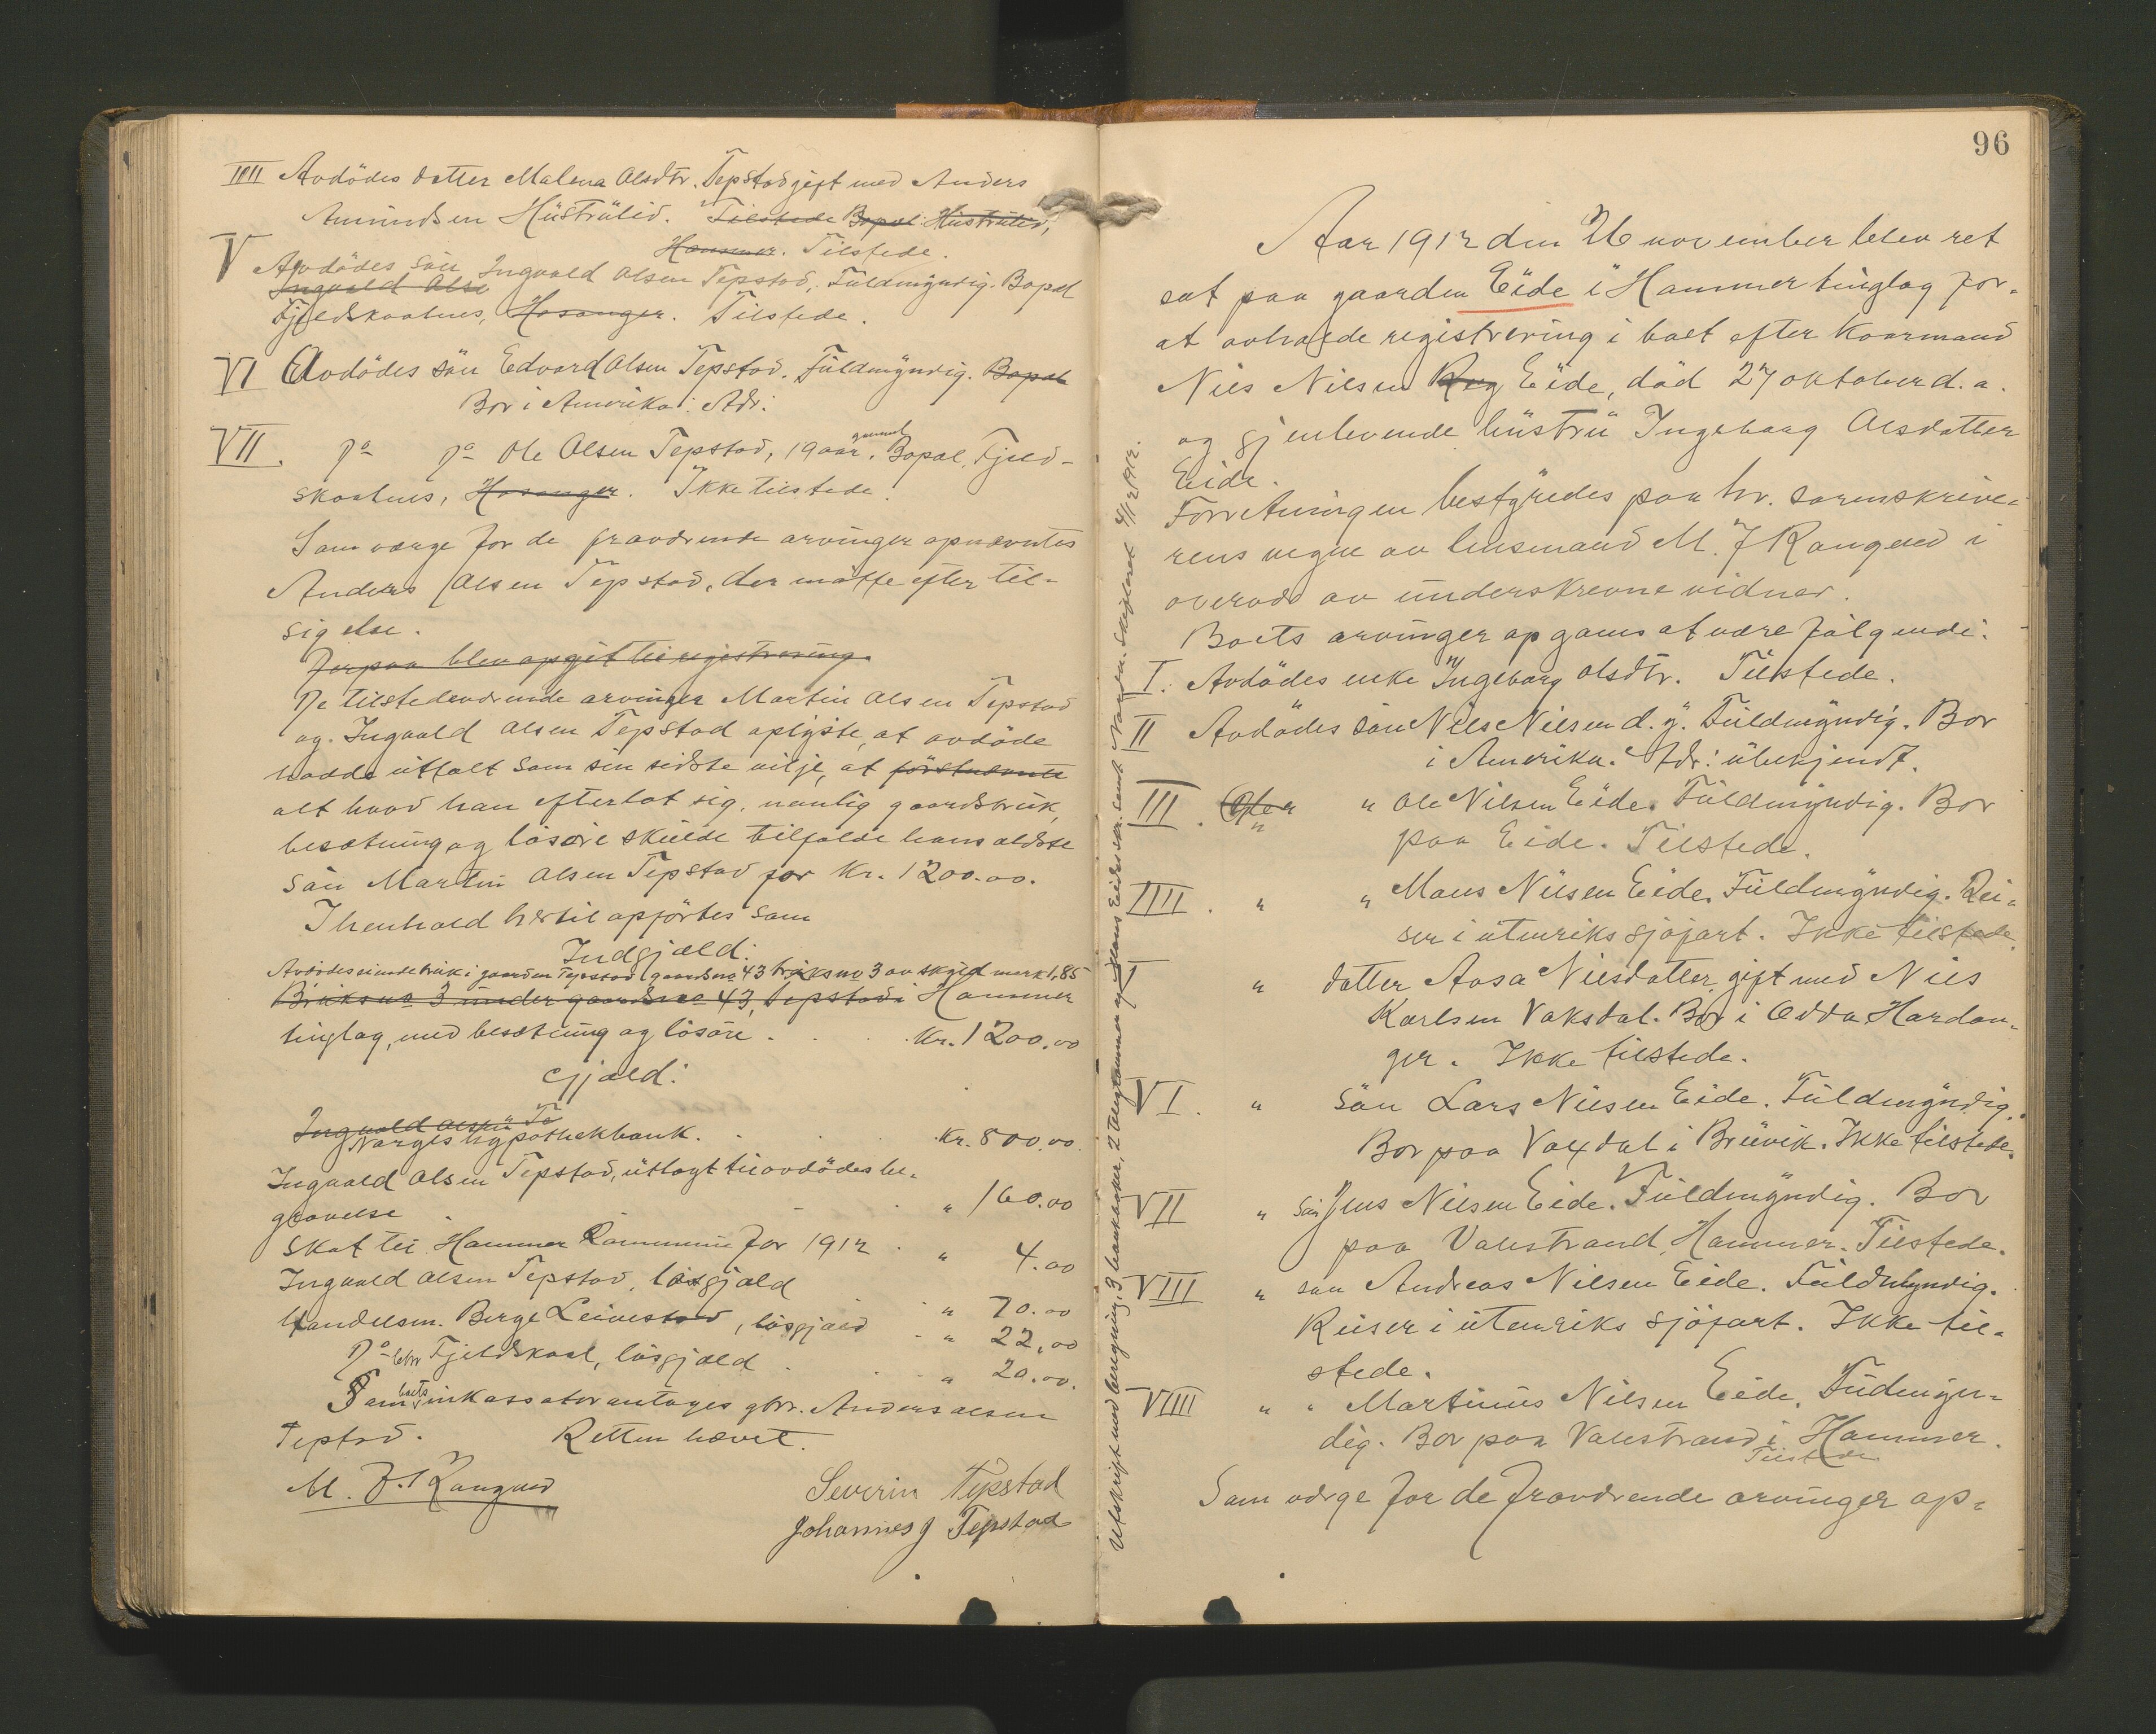 IIII Avdödes datter Malena Olsdtr. Tepstad gift med Anders
Amundsen Hüsträlid. Tilstede Bopal: Hüsträlid,
Hammer. Tilstede.
V Avdödes sön Ingvald Olsen Tepstad, Füldmÿndig. Bopæl
Ingvald Olse
Fjeldskaalnes, Hosanger. Tilstede.
VI Avdödes sön Edvard Olsen Tepstad. Füldmÿndig. Bopæl
Bor i Amerika: Adr:
VII. Do Do Ole Olsen Tepstad, 19 aar gammel. Bopæl, Fjeld-
skaalnes, Hosanger. Ikke tilstede.
Som værge for de fraværende arvinger opnævntes
Anders Olsen Tepstad, der mötte efter til-
sigelse.
Derpaa blev opgit til registrering.
De tilstedeværende arvinger Martin Olsen Tepstad
og Ingvald Olsen Tepstad oplÿste, at avdöde
hadde üttalt som sin sidste vilje, at
alt hvad han efterlot sig, nemlig gaardsbrük,
besætning og lösöre skülde tilfalde hans ældste
sön Martin Olsen Tepstad for Kr. 1200.00.
I henhold hertil opförtes som
Indgjæld:
Avdödes eiende brük i gaarden Tepstad gaardsno 43 brüksno 3 av skÿld mark 1,85
Brüksno 3 ünder gaardsno 43, Tepstad i Hammer
tinglag, med besætning og lösöre . . . Kr. 1200.00
Gjæld:
Ingvald Olsen Te
Norges hypothekbank. . . . Kr. 800.00
Ingvald Olsen Tepstad, ütlagt til avdödes be-
gravelse . . . " 160.00
Skat til Hammer kommune for 1912 . " 4.00
Ingvald Olsen Tepstad, lösgjæld . " 70.00
Handelsm. Berge Leivestad, lösgjæld . " 22.00
Do Fjeldskaal, lösgjæld . . " 20.00.
Som boets inkassator antages gbr. Anders Olsen
Tepstad. Retten hævet.
M. J. Rangned
Severin Tepstad
Johannes J Tepstad
Utskrift med
96
Aar 1912 den 26 november blev ret
sat paa gaarden Eide i Hammer tinglag for
at avholde registrering i boet efter kaarmand
Nils Nilsen Eide, död 27 oktober d.a.
og gjenlevende hüstrü Ingeborg Olsdatter
Eide.
Forretningen bestÿredes paa hr. sorenskrive-
rens vegne av lensmand M. J Rangned i
overvær av ünderskrevne vidner.
Boets arvinger opgaves at være fölgende:
I. Avdödes enke Ingeborg Olsdtr. Tilstede.
II Avdödes sön Nils Nilsen d.ÿ. Füldmÿndig. Bor
i Amerika. Adr: übekjendt.
III. " " Ole Nilsen Eide. Füldmÿndig. Bor
paa Eide. Tilstede.
IIII. " " Mons Nilsen Eide. Füldmÿndig. Rei-
ser i ütenriks sjöfart. Ikke tilstede.
V " datter Aasa Nilsdatter, gift med Nils
Karlsen Vaksdal. Bor i Odda Hardan-
ger. Ikke tilstede.
VI. " sön Lars Nilsen Eide. Füldmÿndig.
Bor paa Vaxdal i Brüvik. Ikke tilstede.
VII " sön Jens Nilsen Eide. Füldmÿndig. Bor
paa Valestrand, Hammer. Tilstede.
VIII " sön Andreas Nilsen Eide. Füldmÿndig.
Reiser i ütenriks sjöfart. Ikke til-
stede.
VIIII " " Martinüs Nilsen Eide, Füldmÿn-
dig. Bor paa Valestrand i Hammer.
Tilstede
Som værge for de fraværende arvinger op-